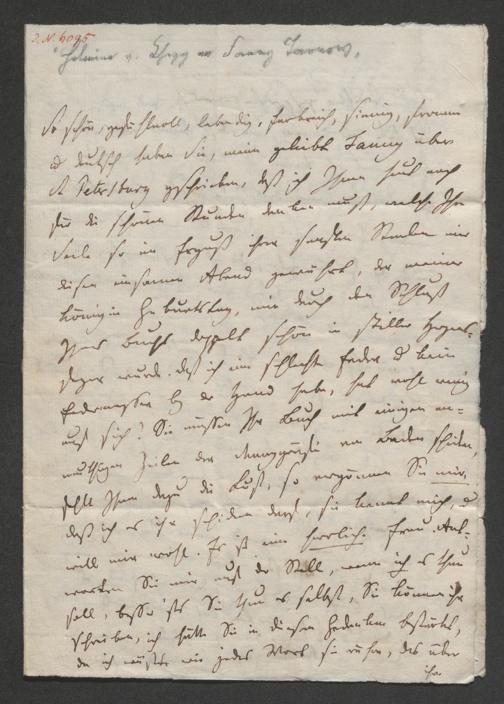 I.N. 6095
Helmina v. Chezy an Fanny Tarnow.
So schön, gefühlvoll, lebendig, farbreich, sinnig, fromm
u deutsch haben Sie, meine geliebte Fanny über
St Petersburg geschrieben, daß ich Ihnen heut noch
für die schönen Stunden danken muß, welche Ihr
Seele so im Erguß ihrer Strahlen mir
diesen einsamen Abend gewährt, der meiner
Königin Geburtstag, mir durch den Schluß
Ihres Buchs doppelt schön in stiller
wurde. daß ich eine schlechte Feder u kein
Federmesser bei der Hand habe, hat wohl wenig
auf sich? Sie müssen Ihr Buch mit einigen an-
muthigen Zeilen der Markgräfin von Baden schicken,
fehlt Ihnen dazu die Lust, so vergönnen Sie mir,
daß ich es ihr schicken darf, sie kennt mich, u
will mir wohl. Es ist eine herrliche Frau. Ant-
worten Sie mir auf der Stell, wenn ich es thun
soll, besser ists Sie thun es selbst, Sie können ihr
schreiben, ich hätte Sie in diesem Gedanken bestärkt,
da ich wüßte wie jedes Wort sie, das über
ihr